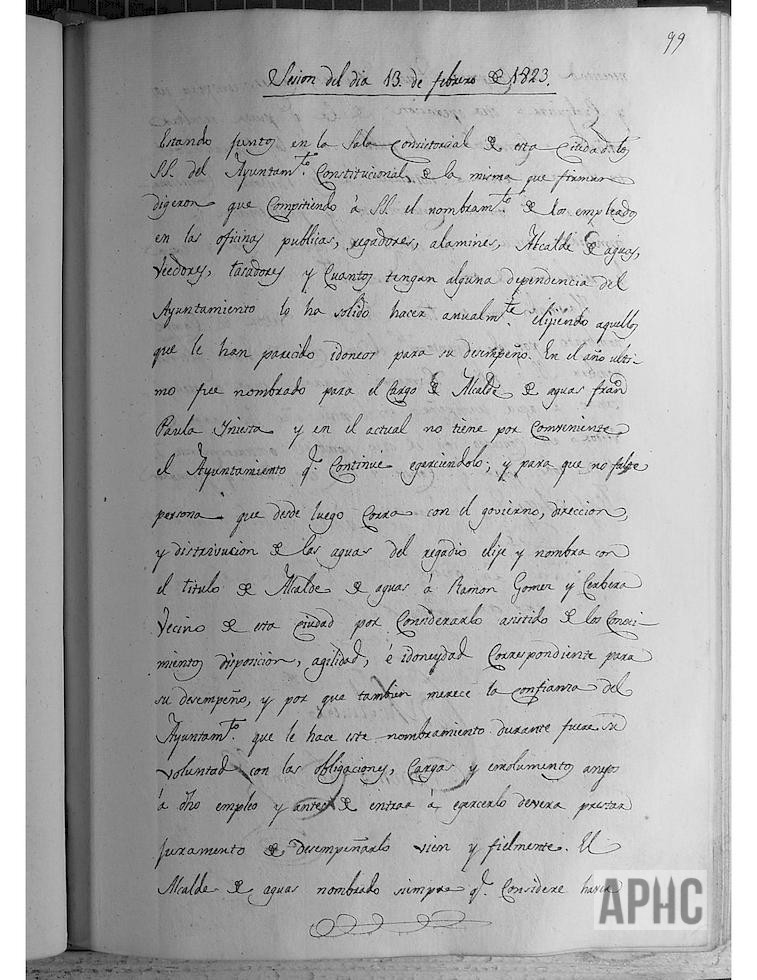 99
Sesion del dia 13. de febrero de 1823.
Estando juntos en la Sala Consistorial de esta Ciudad los
SS. del Ayuntam.to Constitucional de la misma que firman
digeron que Compitiendo á SS. el nombram.to de los empleados
en las oficinas publicas, regadores, alamines, Alcalde de aguas,
Veedores, tasadores y Cuantos tengan alguna dependencia del
Ayuntamiento lo ha solido hacer anualm.te elijiendo aquellos
que le han parecido idoneos para su desempeño. En el año ulti-
mo fue nombrado para el Cargo de Alcalde de aguas Fran.co
Paula Iniesta y en el actual no tiene por Combeniente
el Ayuntamiento q.e Continúe egerciendolo; y para que no falte
persona que desde luego Corra con el govierno, direccion,
y distrivucion de las aguas del regadio elije y nombra con
el titulo de Alcalde de aguas á Ramon Gomez y Cerbera
Vecino de esta Ciudad por Considerarlo asistido de los Conoci-
mientos disposicion, agilidad, é idoneydad Correspondiente para
su desempeño, y por que tambien merece la Confianza del
Ayuntam.to que le hace este nombramiento durante fuere su
voluntad con las obligaciones, Cargas y emolumentos anejos
á dho empleo y antes de entrar á egercerlo devera prestar
juramento de desempeñarlo vien y fielmente. El
Alcalde de aguas nombrado siempre q.e Considere haver
APHC